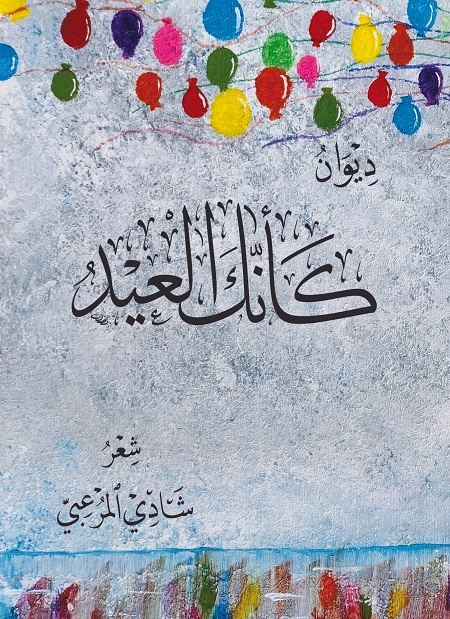 دِيْوَانُ
كَأَنَّكَ الْعِيْدُ
شِعْرُ
شَادِيْ الْمُرْعِبِيّ